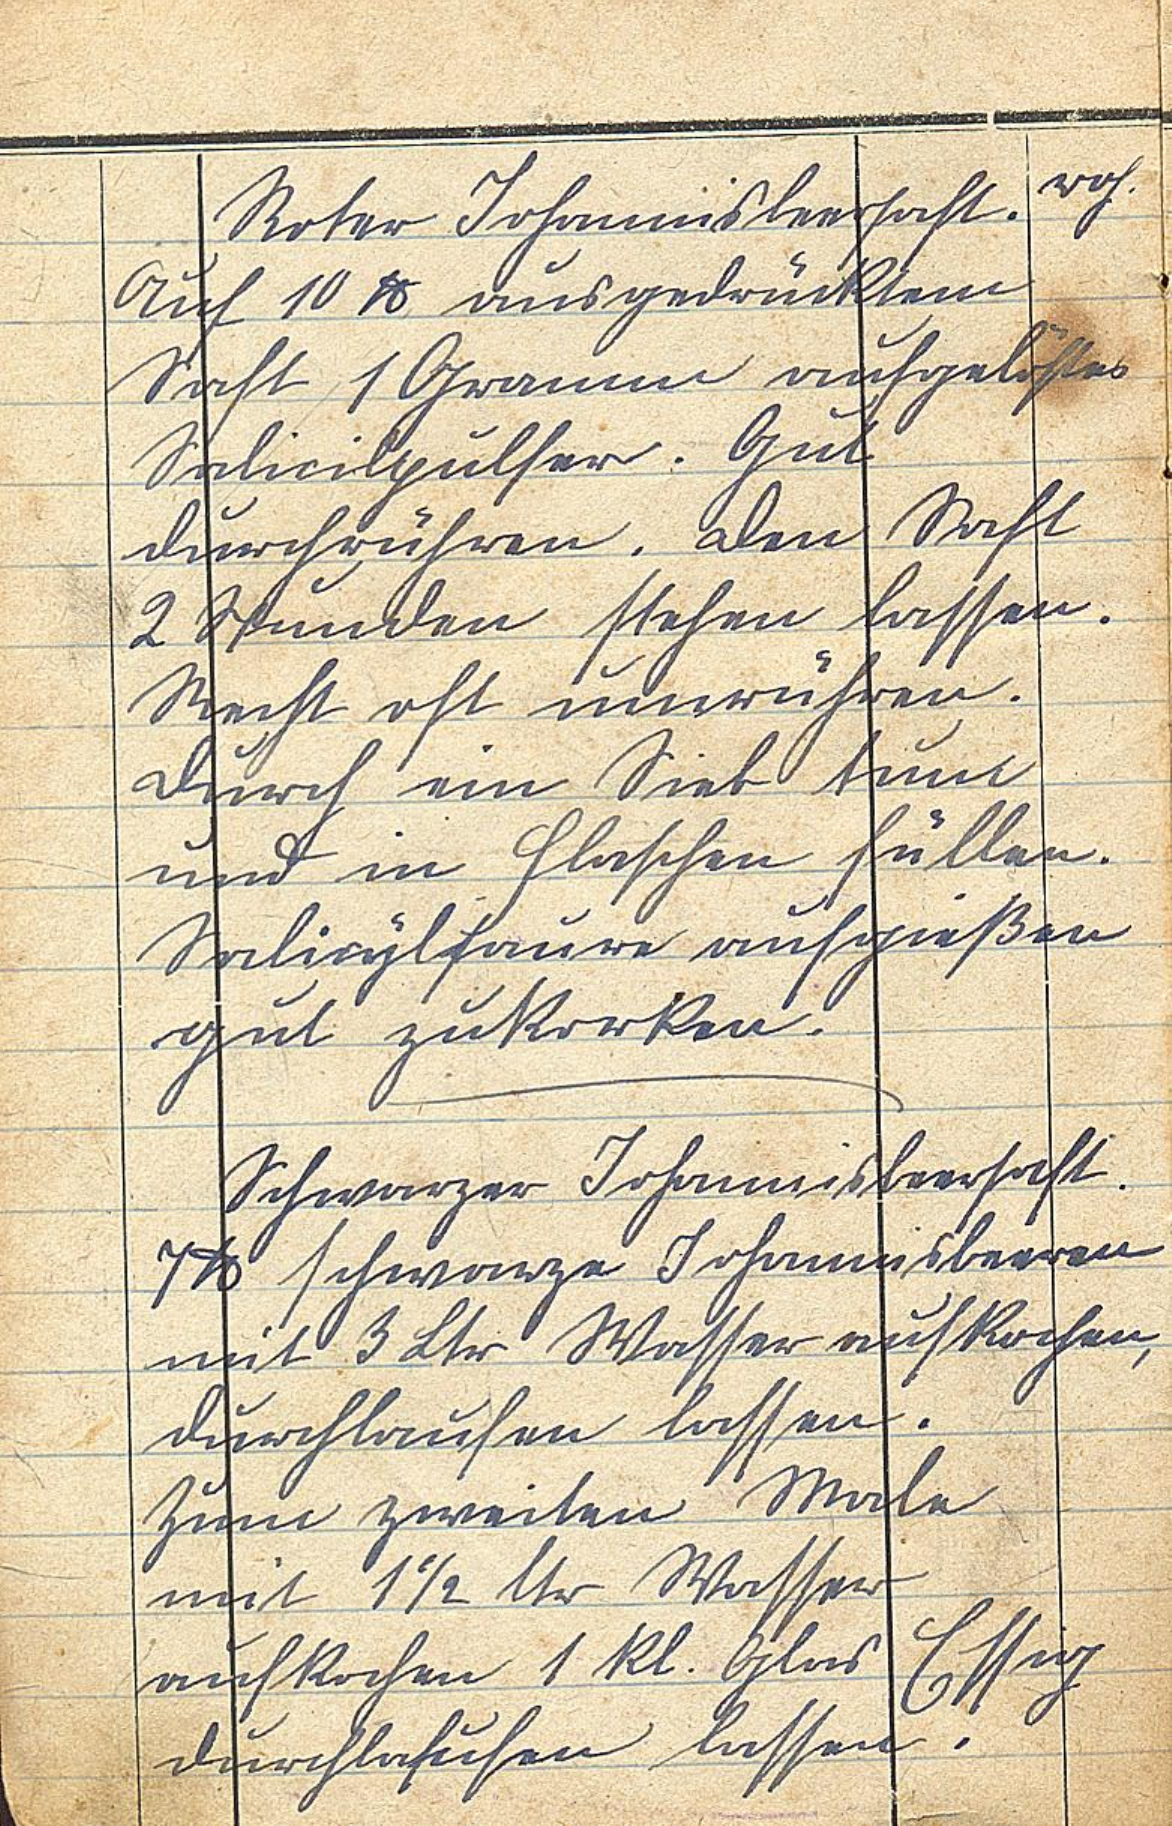 Roter Johannisbeersaft. roh.
Auf 10 ℔ ausgedrücktem
Saft 1 Gramm aufgelöstes
Salicilpulfer. Gut
durchrühren. Den Saft
2 Stunden stehen lassen.
Recht oft umrühren.
Durch ein Sieb tun
und in Flaschen füllen.
Salicylsaure aufgießen
gut zukorken.
Schwarzer Johannisbeersaft.
7 ℔ schwarze Johannisbeeren
mit 3 Ltr Wasser aufkochen,
durchlaufen lassen.
Zum zweiten Male
mit 1 1/2 ltr Wasser
aufkochen 1 kl. Glas Essig
durchlaufen lassen.